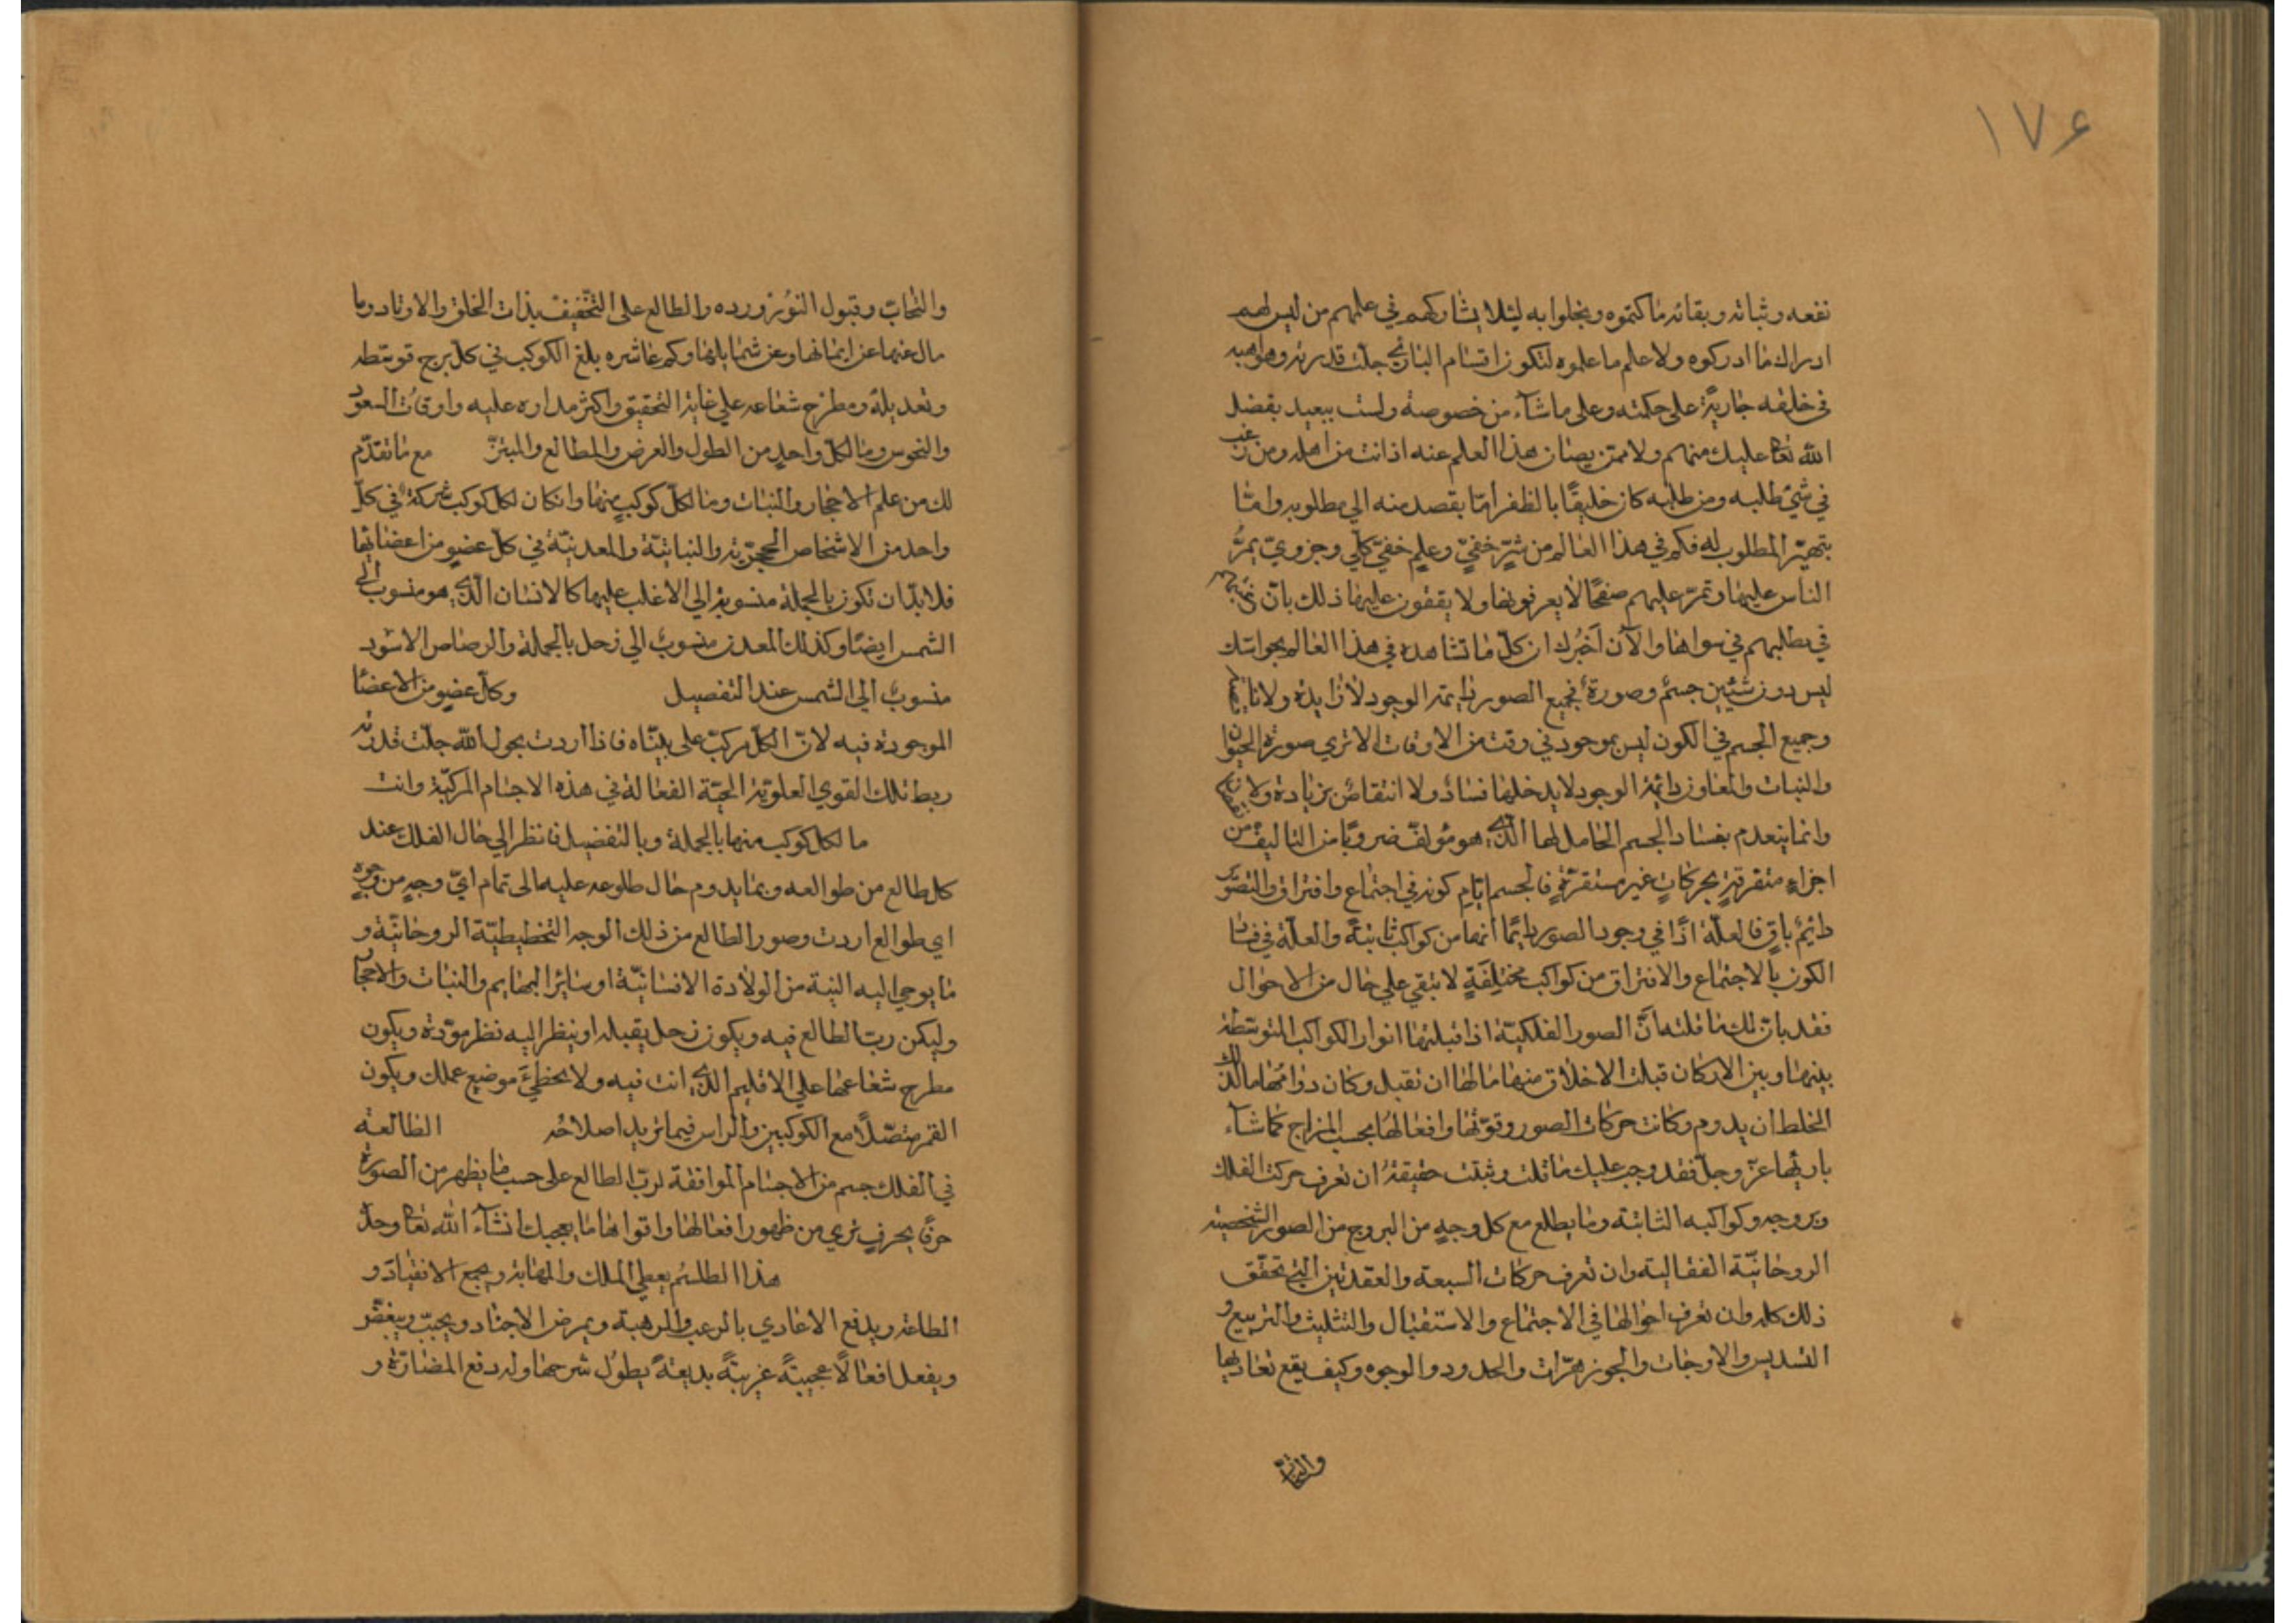 ١٧۶
نفعه وثباته وبقائه ما كتموه وبخلوا به لئلا يشاركهم في علمهم من ليس لهم
ادراك ما ادركوه ولا علم ما علموه لتكون اقسام البارئ جلت قدرته ومواهبه
في خلقه جارية على حكمته وعلى ما شآء من خصوصة ولست ببعيد بفضل
الله تعا عليك منهم ولا ممن يصان هذا العلم عنه اذ انت من اهله ومن رغب
في شئ طلبه ومن طلبه كان خليقًا بالظفر امّا بقصد منه الي مطلوبه وامّا
بتهيّؤ المطلوب له فكم في هذا العالم من سرّ خفيّ وعلم خفيّ كلّي وجزويّ يمرُّ
الناس عليها وتمرّ عليهم صفحًا لا يعرفونها ولا يقفون عليها ذلك بانّ
في مطلبهم في سواها والآن اخبرك ان كلّ ما تشاهده في هذا العالم بحواسك
ليس دون شيئين جسم وصورة فجميع الصور دايمة الوجود لا زايدة ولا ناقصة
وجميع الجسم في الكون ليس بموجود في وقت من الاوقات الا تري صورة الحيوان
والنبات والمعادن دائمة الوجود لا يدخلها فساد ولا انتقاص بزيادة ولا نقصان
وانما ينعدم بفساد الجسم الحامل لها الّذي هو مؤلف ضروبًا من التاليف من
اجزاء متفرقة بحركاتٍ غير مستقرّةٍ فالجسم ايّام كونه في اجتماع وافتراق والتصوّر
دائمٌ باقٍ فالعلّة اذًا في وجود الصور دايمًا انما من كواكب ثابتة والعلّة في فساد
الكون بالاجتماع والافتراق من كواكب مختلفةٍ لا تبقي علي حال من الاحوال
فقد بان لك ما قلته انّ الصور الفلكيّة اذا قبلتها انوار الكواكب المتوسّطة
بينها وبين الاركان قبلت الاخلاق منها ما لها ان تقبل وكان دوامُها ما لذلك
الخلط ان يدوم وكانت حركات الصور وقوّتها وافعالها بحسب المزاج كما شآء
باريها عزّ وجلّ فقد وجب عليك ما قلت وثبتت حقيقته ان تعرف حركت الفلك
وبروجه وكواكبه الثابتة وما يطلع مع كل وجهٍ من البروج من الصور الشخصية
الروحانيّة الفعّالية وان تعرف حركات السبعة والعقدتين التي تحقّق
ذلك كله وان تعرف احوالها في الاجتماع والاستقبال والتثليث والتربيع و
التسديس والاوجات والجوزهرّات والحدود والوجوه وكيف يقع تعاديها
والتحابّ
والتحابّ وقبول النوُر ورده والطالع علي التحقيق بذات الحلق والاوتاد وما
مال عنها عن ايمانها وعن شمايلها وكم عاشره بلغ الكوكب في كلّ برج قوسطه
وتعديله ومطرح شعاعه علي غاية التحقيق واكثر مداره عليه واوقات السعود
والنحوس وما لكلّ واحد من الطول والعرض والمطالع والمبتزّ مع ما تقدّم
لك من علم الاحجار والنبات وما لكلّ كوكبٍ منها وان كان لكل كوكب شركة في كلّ
واحد من الاشخاص الحجريّة والنباتيّة والمعدنيّة في كلّ عضوٍ من اعضائها
فلا بدّ ان تكون بالجملة منسوبة الي الاغلب عليها كالانسان الّذي هو منسوب الي
الشمس ايضًا وكذلك المعدن منسوبٌ الي زحل بالجملة والرصاص الاسود
منسوبٌ الي الشمس عند التفصيل وكلّ عضوٍ من الاعضا
الموجودة فيه لانّ الكلّ مركبّ علي بيّناه فاذا اردت بحول الله جلّت قدرته
ربط تلك القوي العلويّة الحيّة الفعالة في هذه الاجسام المركبّة وانت
ما لكل كوكب منها بالجملة وبالتفصيل فانظر الي حال الفلك عند
كل طالع من طوالعه وبما يدوم حال طلوعه عليه الى تمام ايّ وجهٍ من وجوه
اي طوالع اردت وصور الطالع من ذلك الوجه التخطيطيّة الروحانيّة و
ما يوحي اليه النية من الولادة الانسانيّة او ساير البهايم والنبات والاحجار
وليكن ربّ الطالع فيه ويكون زحل يقبله او ينظر اليه نظر مودّة ويكون
مطرح شعاعها علي الاقليم الذي انت فيه ولا يخطئَ موضع عملك ويكون
القمر متصّلًا مع الكوكبين والراس فيما تريد اصلاحُه الطالعة
في الفلك جسم من الاجسام الموافقة لربّ الطالع على حسب ما يظهر من الصورة
حرفًا بحرفٍ تري من ظهور افعالها واقوالها ما يعجبك ان شآء الله تعا وحدّ
هذا الطلسُم يعطي الملك والمهابة ويجمع الانقياد و
الطاعة ويدفع الاعادي بالرعب والرهبة ويمرض الاجناد ويحبّب ويبغّض
ويفعل افعالًا عجيبةً غريبةً بديعةً يطوُل شرحها وله دفع المضارّة و